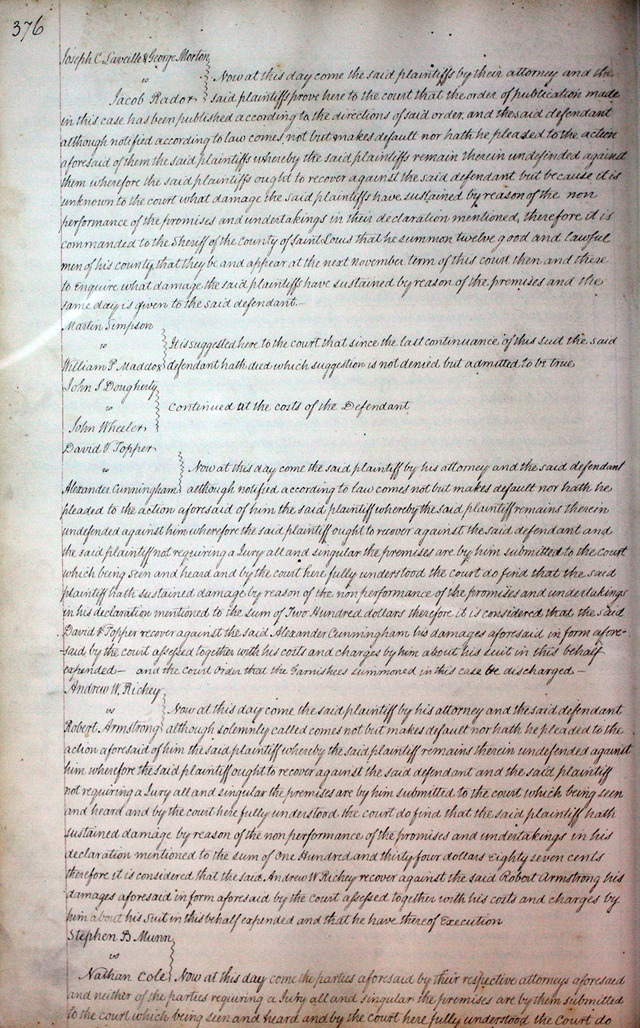 376
Joseph C. Laveille & George Morton
vs Now at this day come the said plaintiffs by their attorney and the
Jacob Rador said plaintiffs prove here to the court that the order of publication made
in this case has been published according to the directions of said order, and the said defendant
although notified according to law comes not but makes default nor hath he pleased to the action
aforesaid of them the said plaintiffs whereby the said plaintiffs remain therein undefended against
them wherefore the said plaintiffs ought to recover against the said defendant but because it is
unknown to the court what damage the said plaintiffs have sustained by reason of the non
performance of the promises and undertakings in their declaration mentioned, therefore it is
commanded to the Sheriff of the County of Saint Louis that he summon twelve good and lawful
men of his county, that they be and appear at the next November term of this court then and there
to Enquire what damage the said plaintiff have sustained by reason of the premises and the
same day is given to the said defendant.—
Martin Simpson
vs It is suggested here to the court that since the last continuance of this suit the said
William P. Maddox defendant hath died which suggestion is not denied but admitted to be true
John S Dougherty
vs Continued at the costs of the Defendant
John Wheeler
David V Topper
vs Now at this day come the said plaintiff by his attorney and the said defendant
Alexander Cunningham although notified according to law comes not but makes default nor hath he
pleaded to the action aforesaid of him the said plaintiff whereby the said plaintiff remains therein
undefended against him wherefore the said plaintiff ought to recover against the said defendant and
the said plaintiff not requiring a Jury all and singular the premises are by him submitted to the court
which being seen and heard and by the court here fully understood the court do find that the said
plaintiff hath sustained damage by reason of the non performance of the promises and undertakings
in his declaration mentioned to the sum of Two Hundred dollars therefore it is considered that the said
David V Topper recover against the said Alexander Cunningham his damages aforesaid in form afore-
-said by the court assessed together with his costs and charges by him about his suit in this behalf
expended— and the court order that the Garnishees summoned in this case be discharged.—
Andrew W. Rickey
vs Now at this day come the said plaintiff by his attorney and the said defendant
Robert Armstrong although solemnly called comes not but makes default nor hath he pleaded to the
action aforesaid of him the said plaintiff whereby the said plaintiff remains therein undefended against
him wherefore the said plaintiff ought to recover against the said defendant and the said plaintiff
not requiring a Jury all and singular the premises are by him submitted to the court which being seen
and heard and by the court here fully understood the court do find that the said plaintiff hath
sustained damage by reason of the non performance of the promises and undertakings in his
declaration mentioned to the sum of One Hundred and thirty four dollars Eighty seven cents
therefore it is considered that the said Andrew W Rickey recover against the said Robert Armstrong his
damages aforesaid in form aforesaid by the court assessed together with his costs and charges by
him about his Suit in this behalf expended and that he have thereof Execution
Stephen B Munn
vs
Nathan Cole Now at this day come the parties aforesaid by their respective attorneys aforesaid
and neither of the parties requiring a Jury all and singular the premises are by them submitted
to the court which being seen and heard and by the court here fully understood the Court do